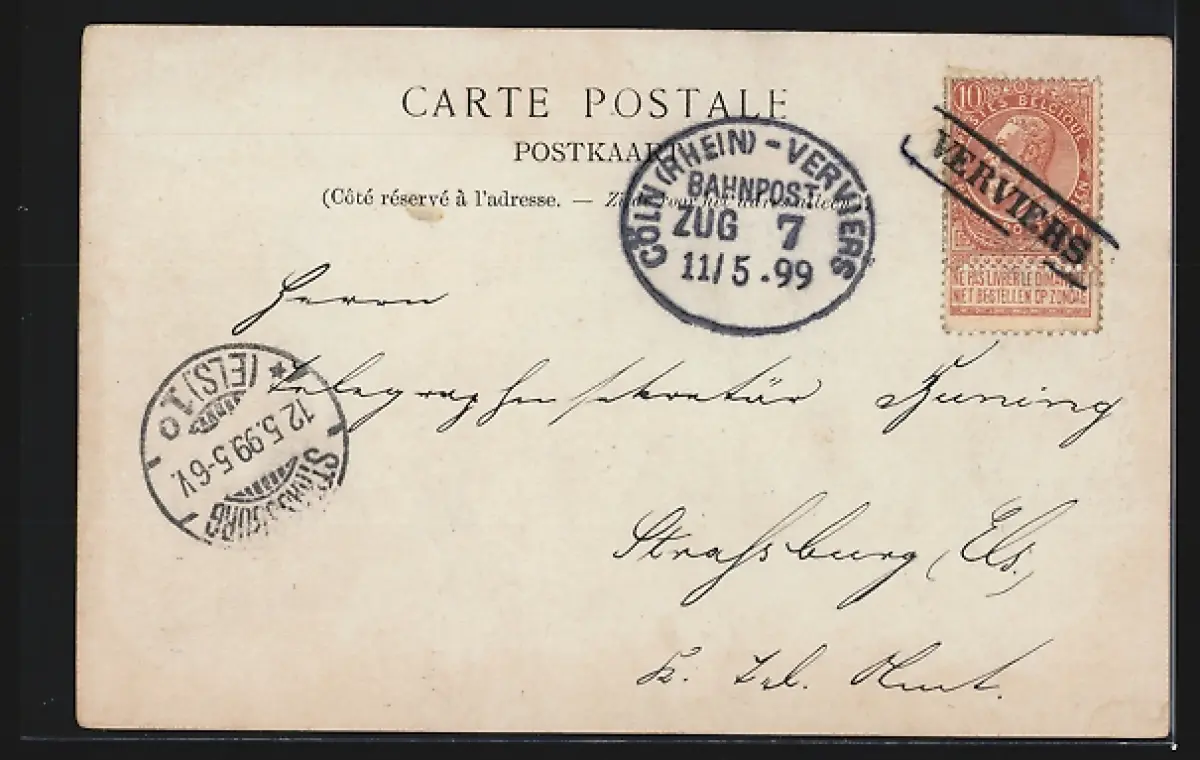 CARTE POSTALE
POSTKAART
(Côté réservé à l'adresse. —
CÖLN (RHEIN) - VERVIERS
BAHNPOST
ZUG 7
11/5.99
10
POSTES BELGIQUE
NE PAS LIVRER LE DIMANCHE
NIET BESTELLEN OP ZONDAG
VERVIERS
Herrn
Telegraphensekretär Huning
STRASSBURG
(ELS) 1.
12.5.99.5-6V.
o
Strassburg (Els.)
K. Tel. Amt.